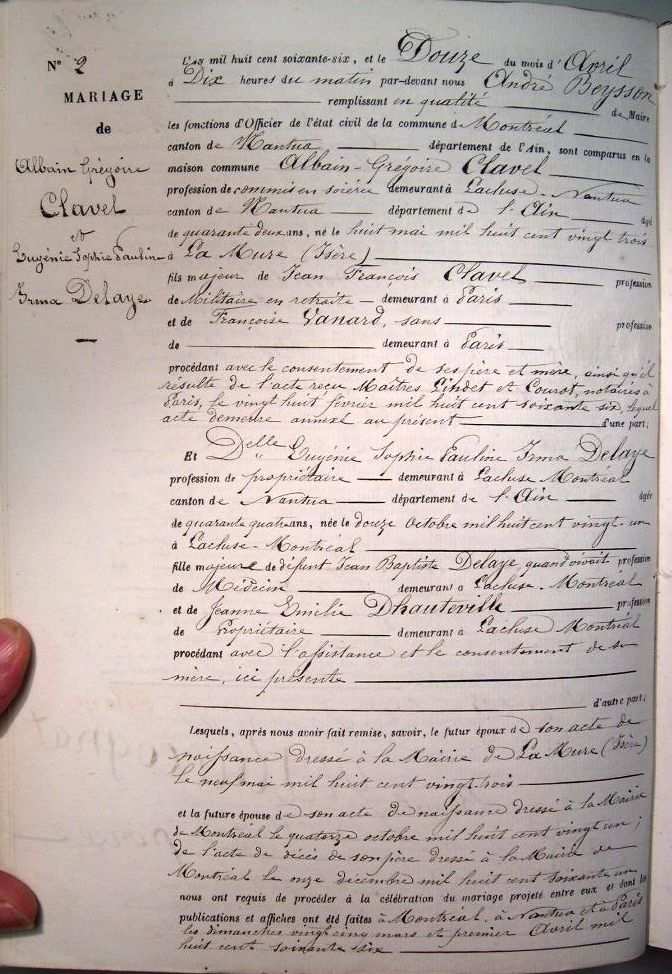 N° 2
MARIAGE
de
Albain Grégoire
Clavel
et
Eugénie Sophie Pauline
Irma Delaye
L'an mil huit cent soixante-six, et le Douze du mois d'Avril
à Dix heures du matin par-devant nous André Beysson
remplissant en qualité de Maire
les fonctions d'Officier de l'état civil de la commune de Montréal
canton de Nantua département de l'Ain, sont comparus en la
maison commune Albain-Grégoire Clavel
profession de commis en soierie demeurant à Lacluse-Nantua
canton de Nantua département de l'Ain âgé
de quarante deux ans, né le huit mai mil huit cent vingt trois
à La Mure (Isère)
fils majeur de Jean François Clavel profession
de Militaire en retraite demeurant à Paris
et de Françoise Vanard, sans profession
de demeurant à Paris
procédant avec le consentement de ses père et mère, ainsi qu'il
résulte de l'acte reçu Maîtres Lindet et Courot, notaires à
Paris, le vingt huit février mil huit cent soixante six, lequel
acte demeure annexé au présent d'une part;
Et Delle Eugénie Sophie Pauline Irma Delaye
profession de propriétaire demeurant à Lacluse Montréal
canton de Nantua département de l'Ain âgée
de quarante quatre ans, née le douze Octobre mil huit cent vingt-un
à Lacluse-Montréal
fille majeure de défunt Jean Baptiste Delaye, quand vivait profession
de Médecin demeurant à Lacluse-Montréal
et de Jeanne Emilie Dhauteville profession
de Propriétaire demeurant à Lacluse Montréal
procédant avec l'assistance et le consentement de sa
mère, ici présente
d'autre part;
Lesquels, après nous avoir fait remise, savoir, le futur époux de son acte de
naissance dressé à la Mairie de La Mure (Isère)
le neuf mai mil huit cent vingt-trois
et la future épouse de son acte de naissance dressé à la Mairie
de Montréal le quatorze octobre mil huit cent vingt un;
de l'acte de décès de son père dressé à la Mairie de
Montréal le onze décembre mil huit cent soixante un
nous ont requis de procéder à la célébration du mariage projeté entre eux et dont les
publications et affiches ont été faites à Montréal, à Nantua et à Paris
les dimanches vingt cinq mars et premier Avril mil
huit cent soixante six